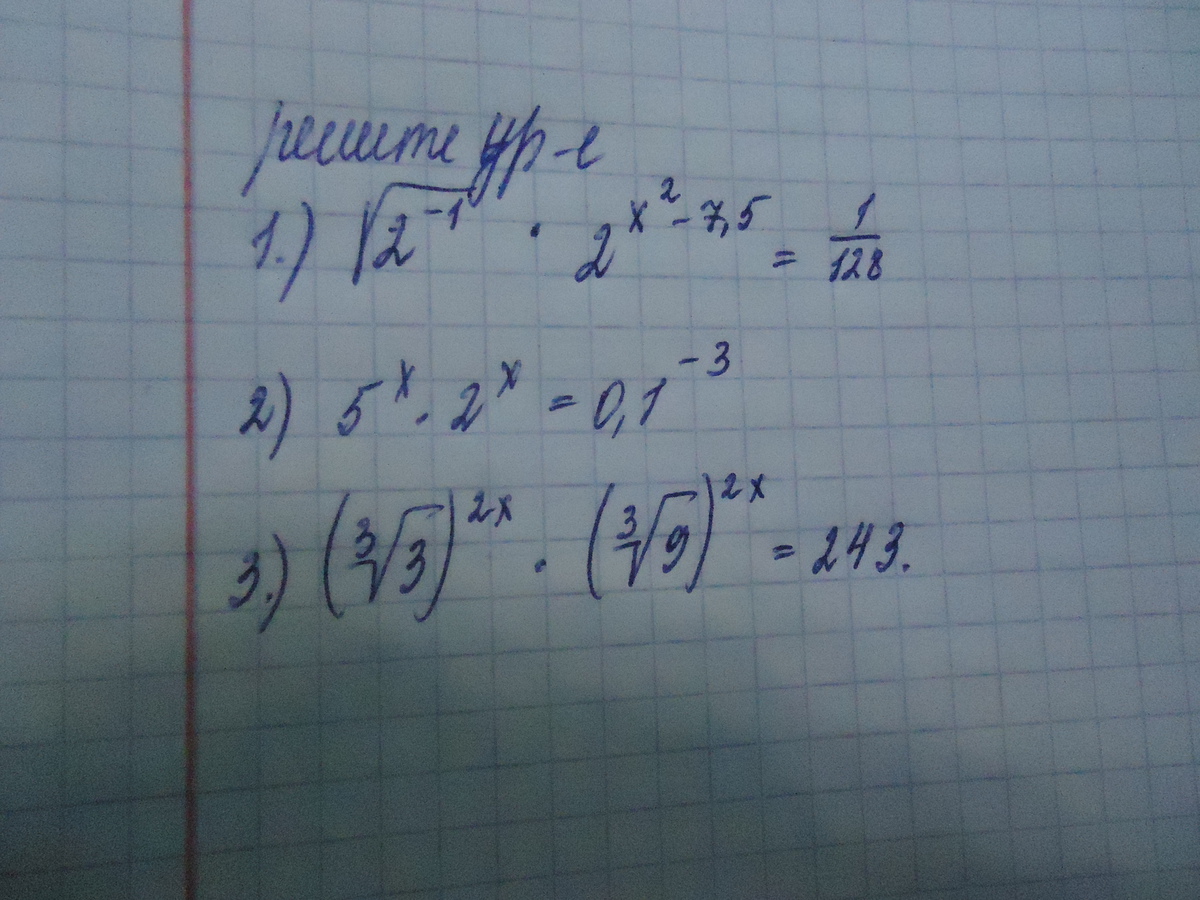 решите ур-е
1.) √2⁻¹ · 2^(x²-7,5) = 1/128
2) 5^x · 2^x = 0,1⁻³
3.) (∛3)^(2x) · (∛9)^(2x) = 243.